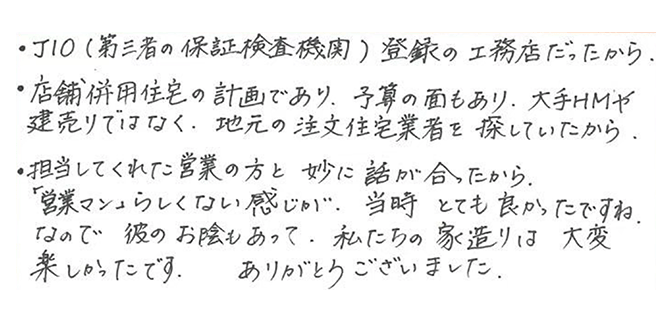 ・JIO(第三者の保証検査機関)登録の工務店だったから.
・店舗併用住宅の計画であり.予算の面もあり.大手HMや
建売りではなく.地元の注文住宅業者を探していたから.
・担当してくれた営業の方と妙に話が合ったから.
「営業マン」らしくない感じが.当時とても良かったですね.
なので彼のお陰もあって.私たちの家造りは大変
楽しかったです.ありがとうございました.